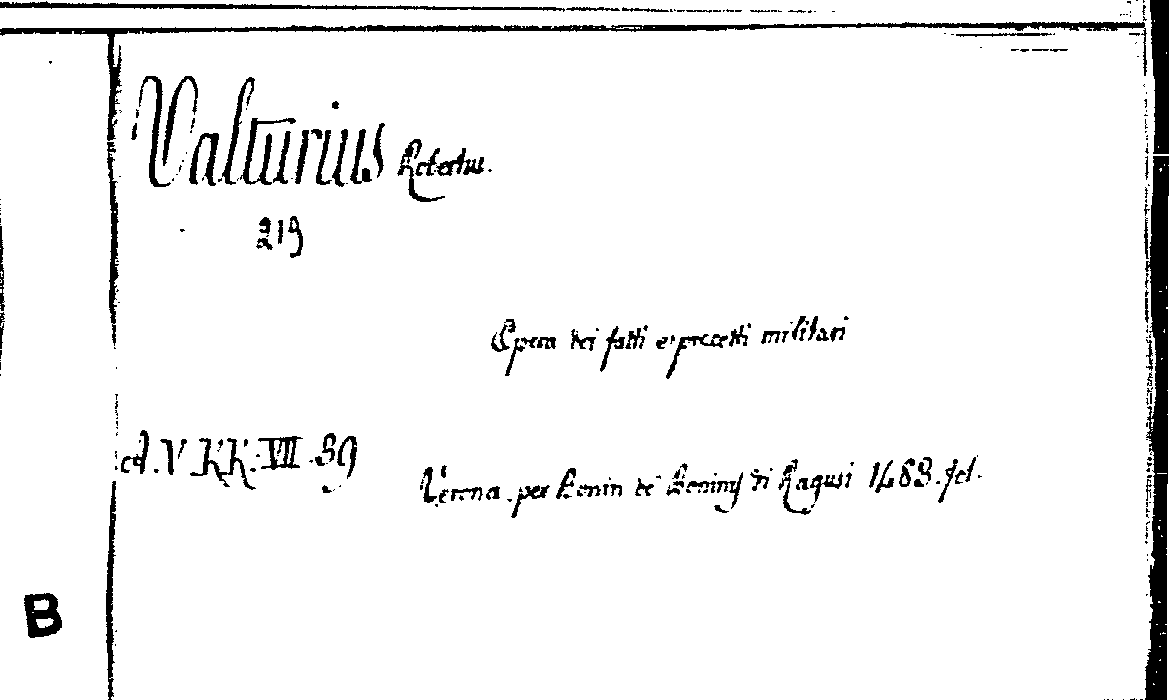 Valturius Robertus.
219
Opera dei fatti e precetti militari
cd. V. KK. VII. 39
Verona. per Bonin de' Boninij di Ragusi 1483. fol.
B